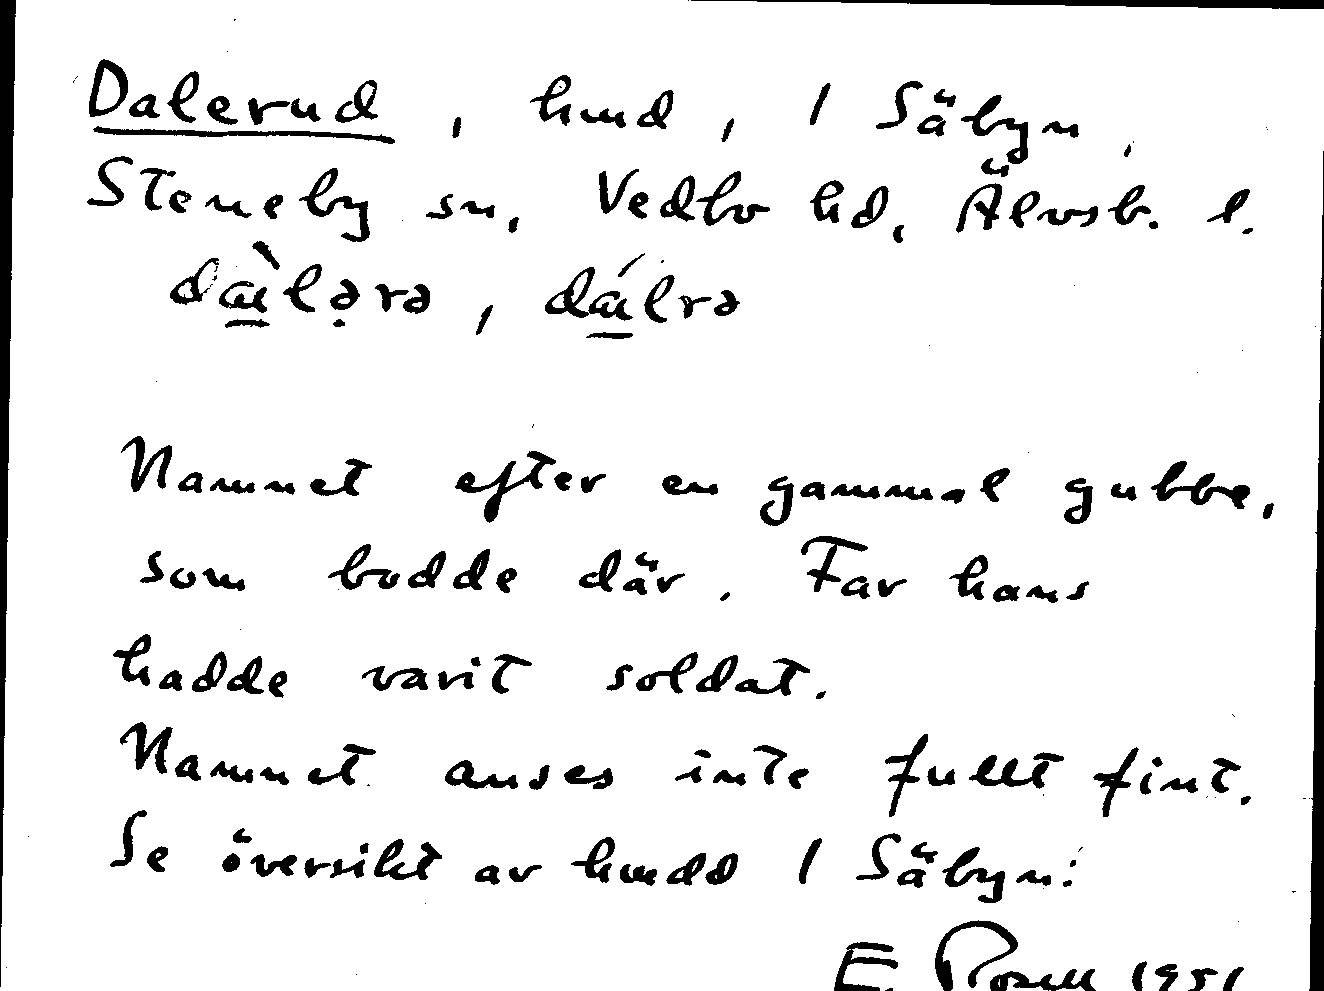 Dalerud, hmd, 1 Säbyn,
Steneby sn, Vedbo hd, Älvsb. l.
dàlərə, dálrə
Namnet efter en gammal gubbe,
som bodde där. Far hans
hadde varit soldat.
Namnet anses inte fullt fint.
Se översikt av hmdd 1 Säbyn:
E. Rosell 1951